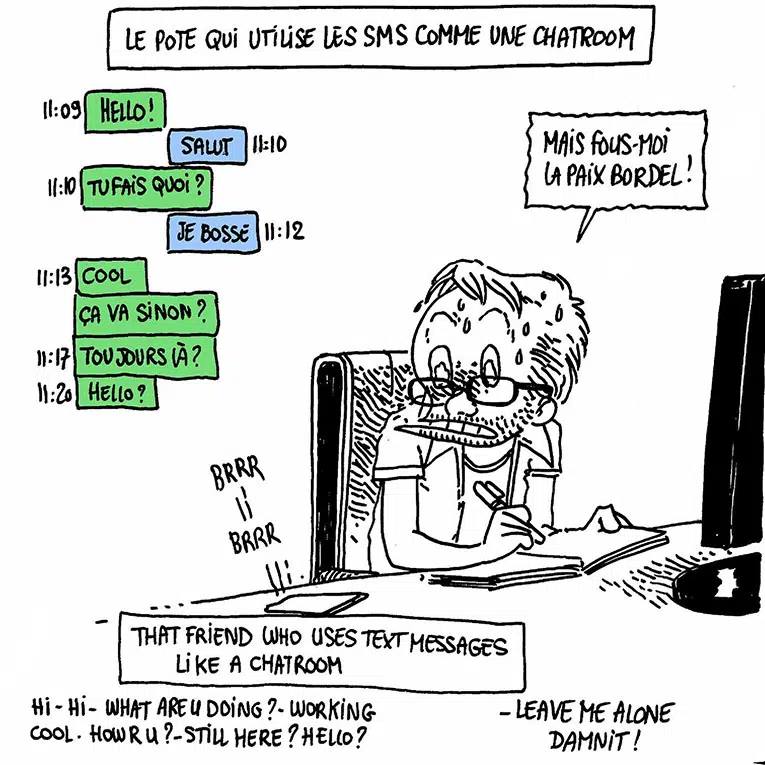 LE POTE QUI UTILISE LES SMS COMME UNE CHATROOM
11:09 HELLO!
SALUT 11:10
11:10 TU FAIS QUOI ?
JE BOSSE 11:12
11:13 COOL
ÇA VA SINON ?
11:17 TOUJOURS LÀ ?
11:20 HELLO ?
MAIS FOUS-MOI
LA PAIX BORDEL !
BRRR
BRRR
THAT FRIEND WHO USES TEXT MESSAGES
LIKE A CHATROOM
HI - HI - WHAT ARE U DOING ? - WORKING
COOL. HOW R U ? - STILL HERE ? HELLO ?
- LEAVE ME ALONE
DAMNIT !